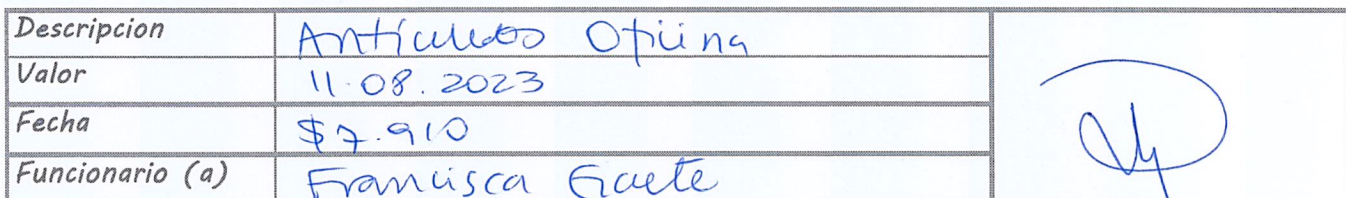 Descripcion Artículos Oficina
Valor 11.08.2023
Fecha $7.910
Funcionario (a) Francisca Gaete